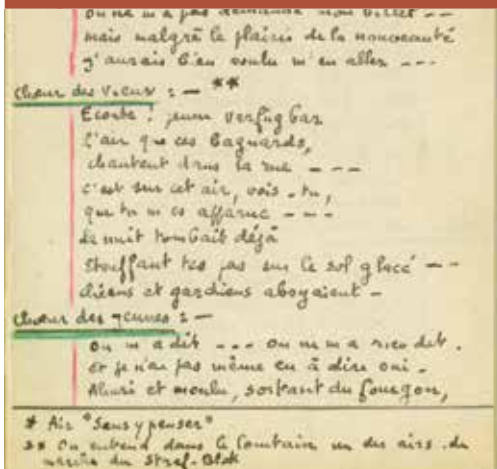 on ne m'a pas demandé mon billet --
mais malgré le plaisir de la nouveauté
j'aurais b'en voulu m'en aller ---
Chœur des vieux : - **
Ecoute ! jeune Verfügbar
l'air que ces bagnards,
chantent dans la rue ---
c'est sur cet air, vois-tu,
que tu m'es apparue ---
La nuit tombait déjà
Etouffant tes pas sur le sol glacé --
chiens et gardiens aboyaient -
Chœur des jeunes : -
on m'a dit --- on ne m'a rien dit.
et je n'ai pas même eu à dire oui.
Ahuri et moulu, sortant du fourgon,
* Air "Sans y penser"
** On entend dans le lointain un des airs de
marche du Straf-Blok